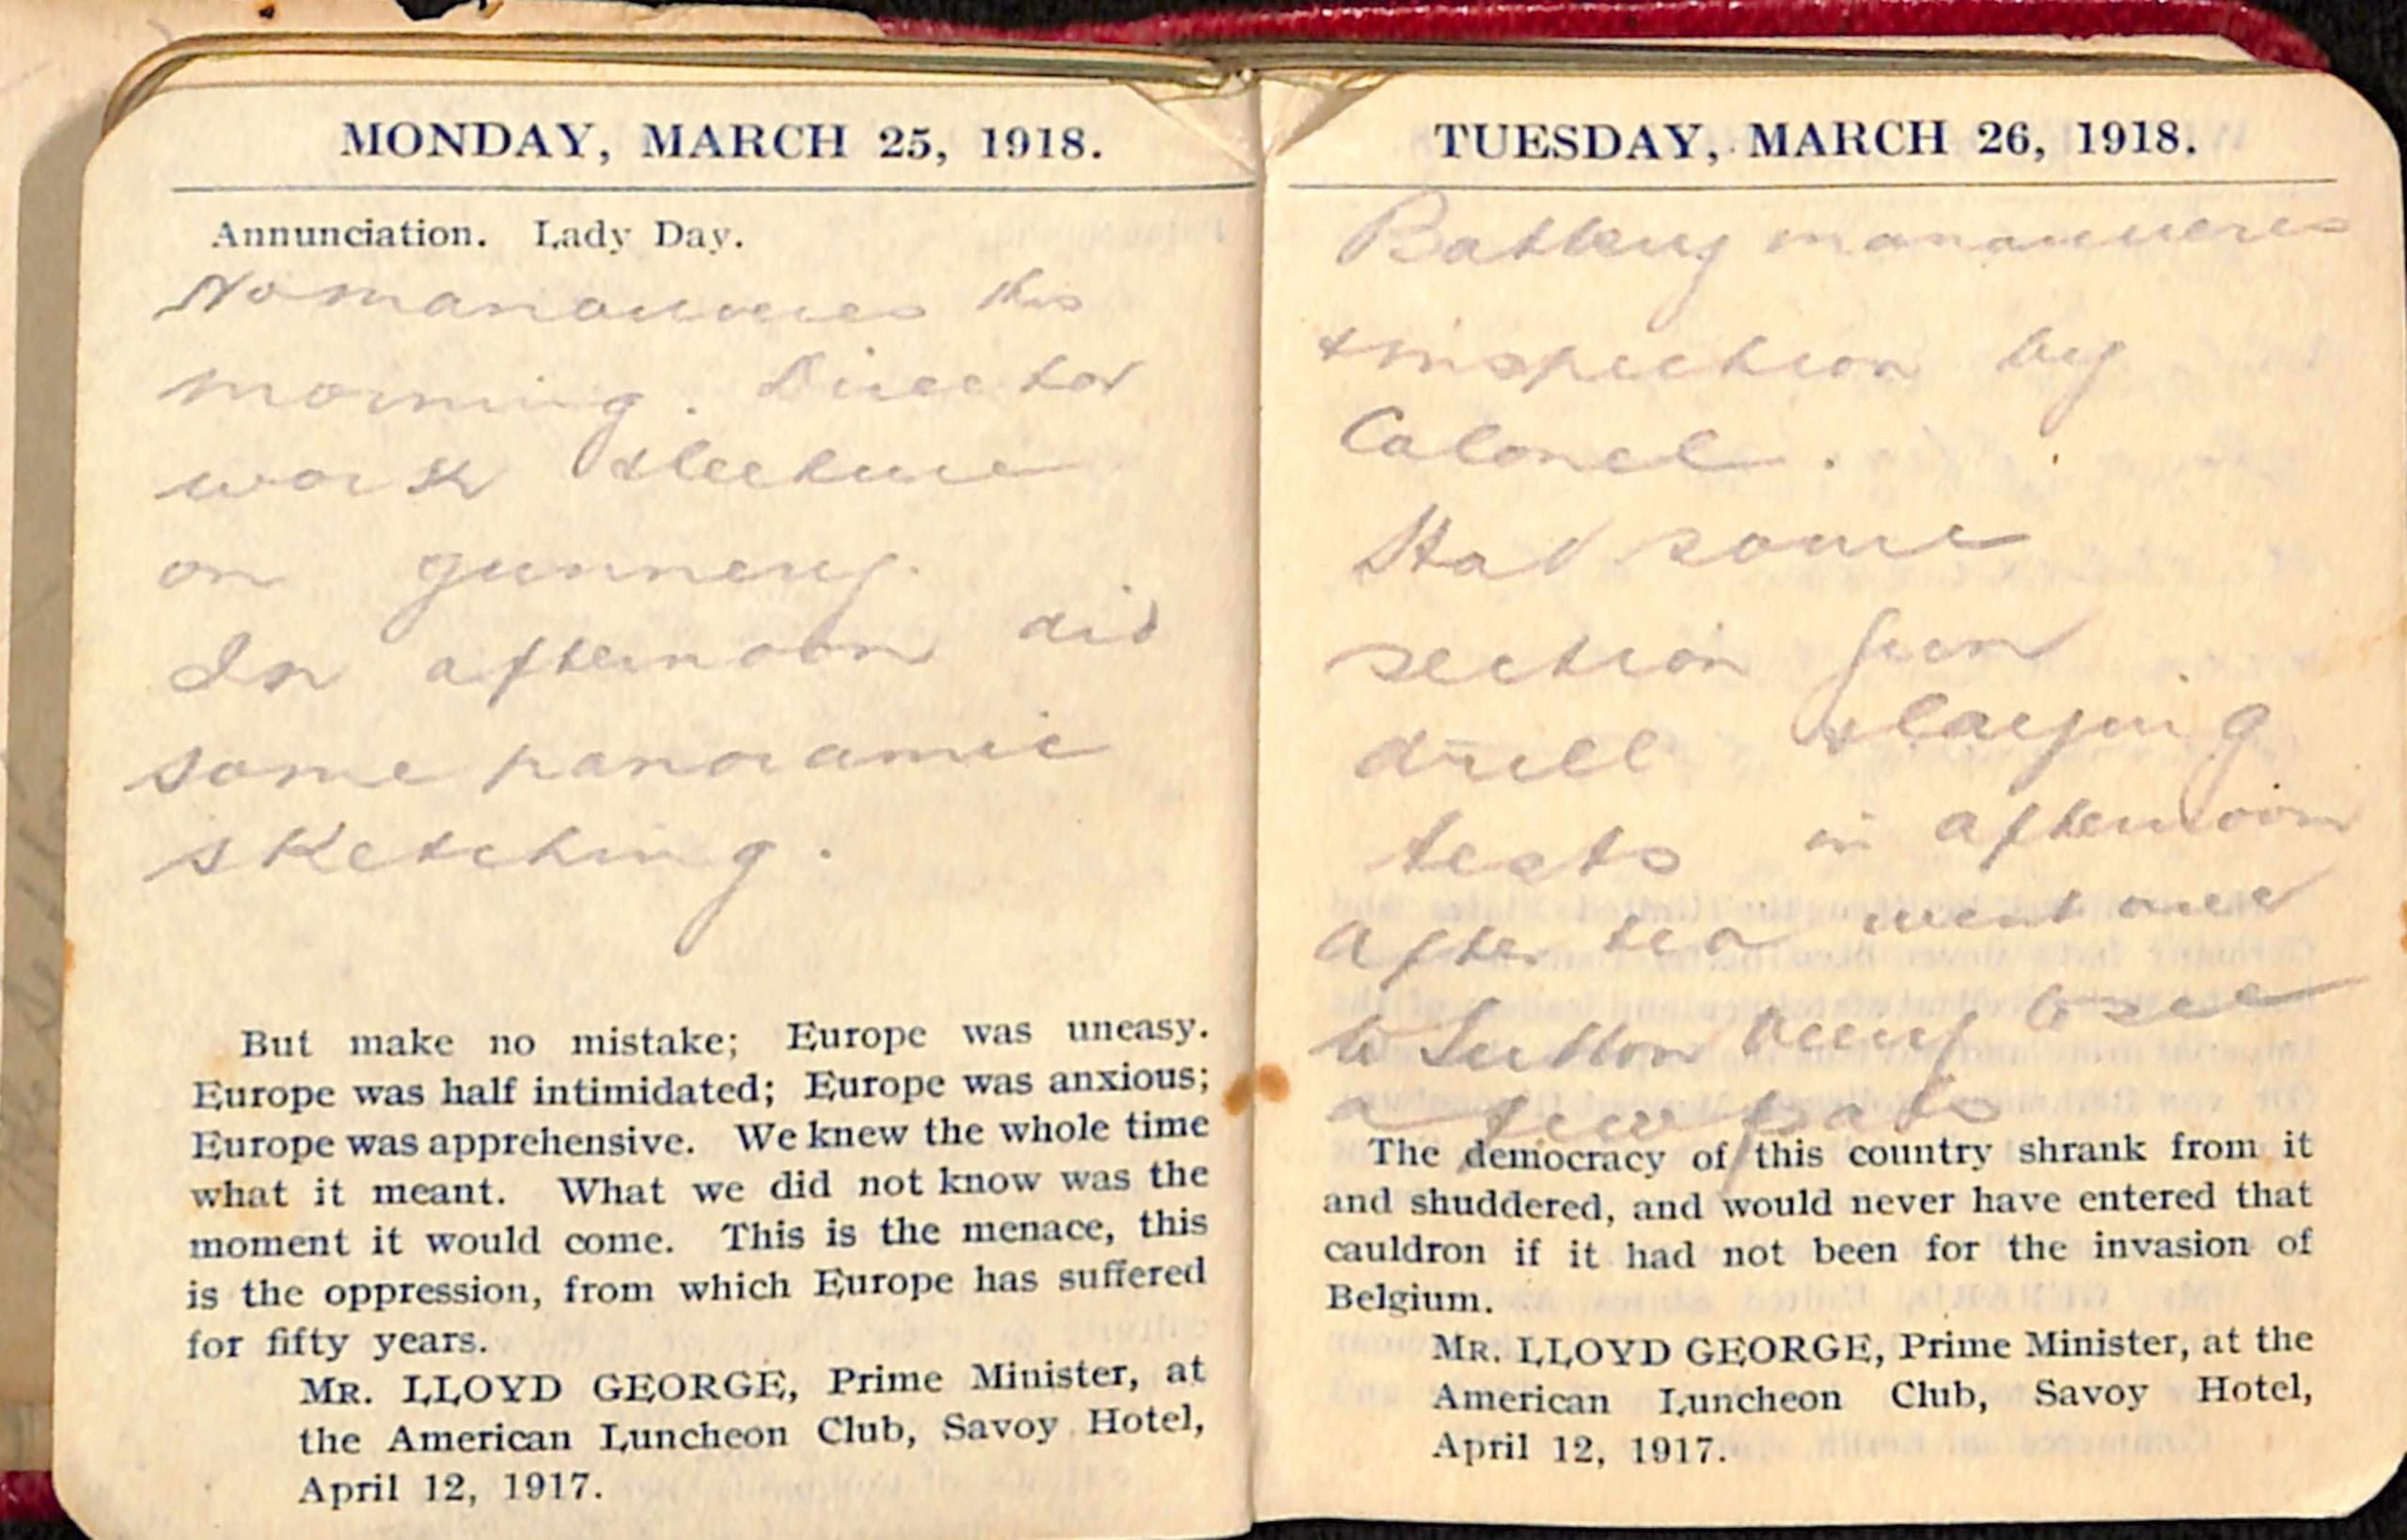 MONDAY, MARCH 25, 1918.
Annunciation. Lady Day.
No manoeuvres this
morning. Director
work & lecture
on gunnery.
In afternoon did
some panoramic
sketching.
But make no mistake; Europe was uneasy.
Europe was half intimidated; Europe was anxious;
Europe was apprehensive. We knew the whole time
what it meant. What we did not know was the
moment it would come. This is the menace, this
is the oppression, from which Europe has suffered
for fifty years.
MR. LLOYD GEORGE, Prime Minister, at
the American Luncheon Club, Savoy Hotel,
April 12, 1917.
TUESDAY, MARCH 26, 1918.
Battery manoeuveres
& inspection by
Colonel.
Had some
section gun
drill & laying
tests in afternoon
After tea went over
to Sutton Veny to see
a few pals
The democracy of this country shrank from it
and shuddered, and would never have entered that
cauldron if it had not been for the invasion of
Belgium.
MR. LLOYD GEORGE, Prime Minister, at the
American Luncheon Club, Savoy Hotel,
April 12, 1917.